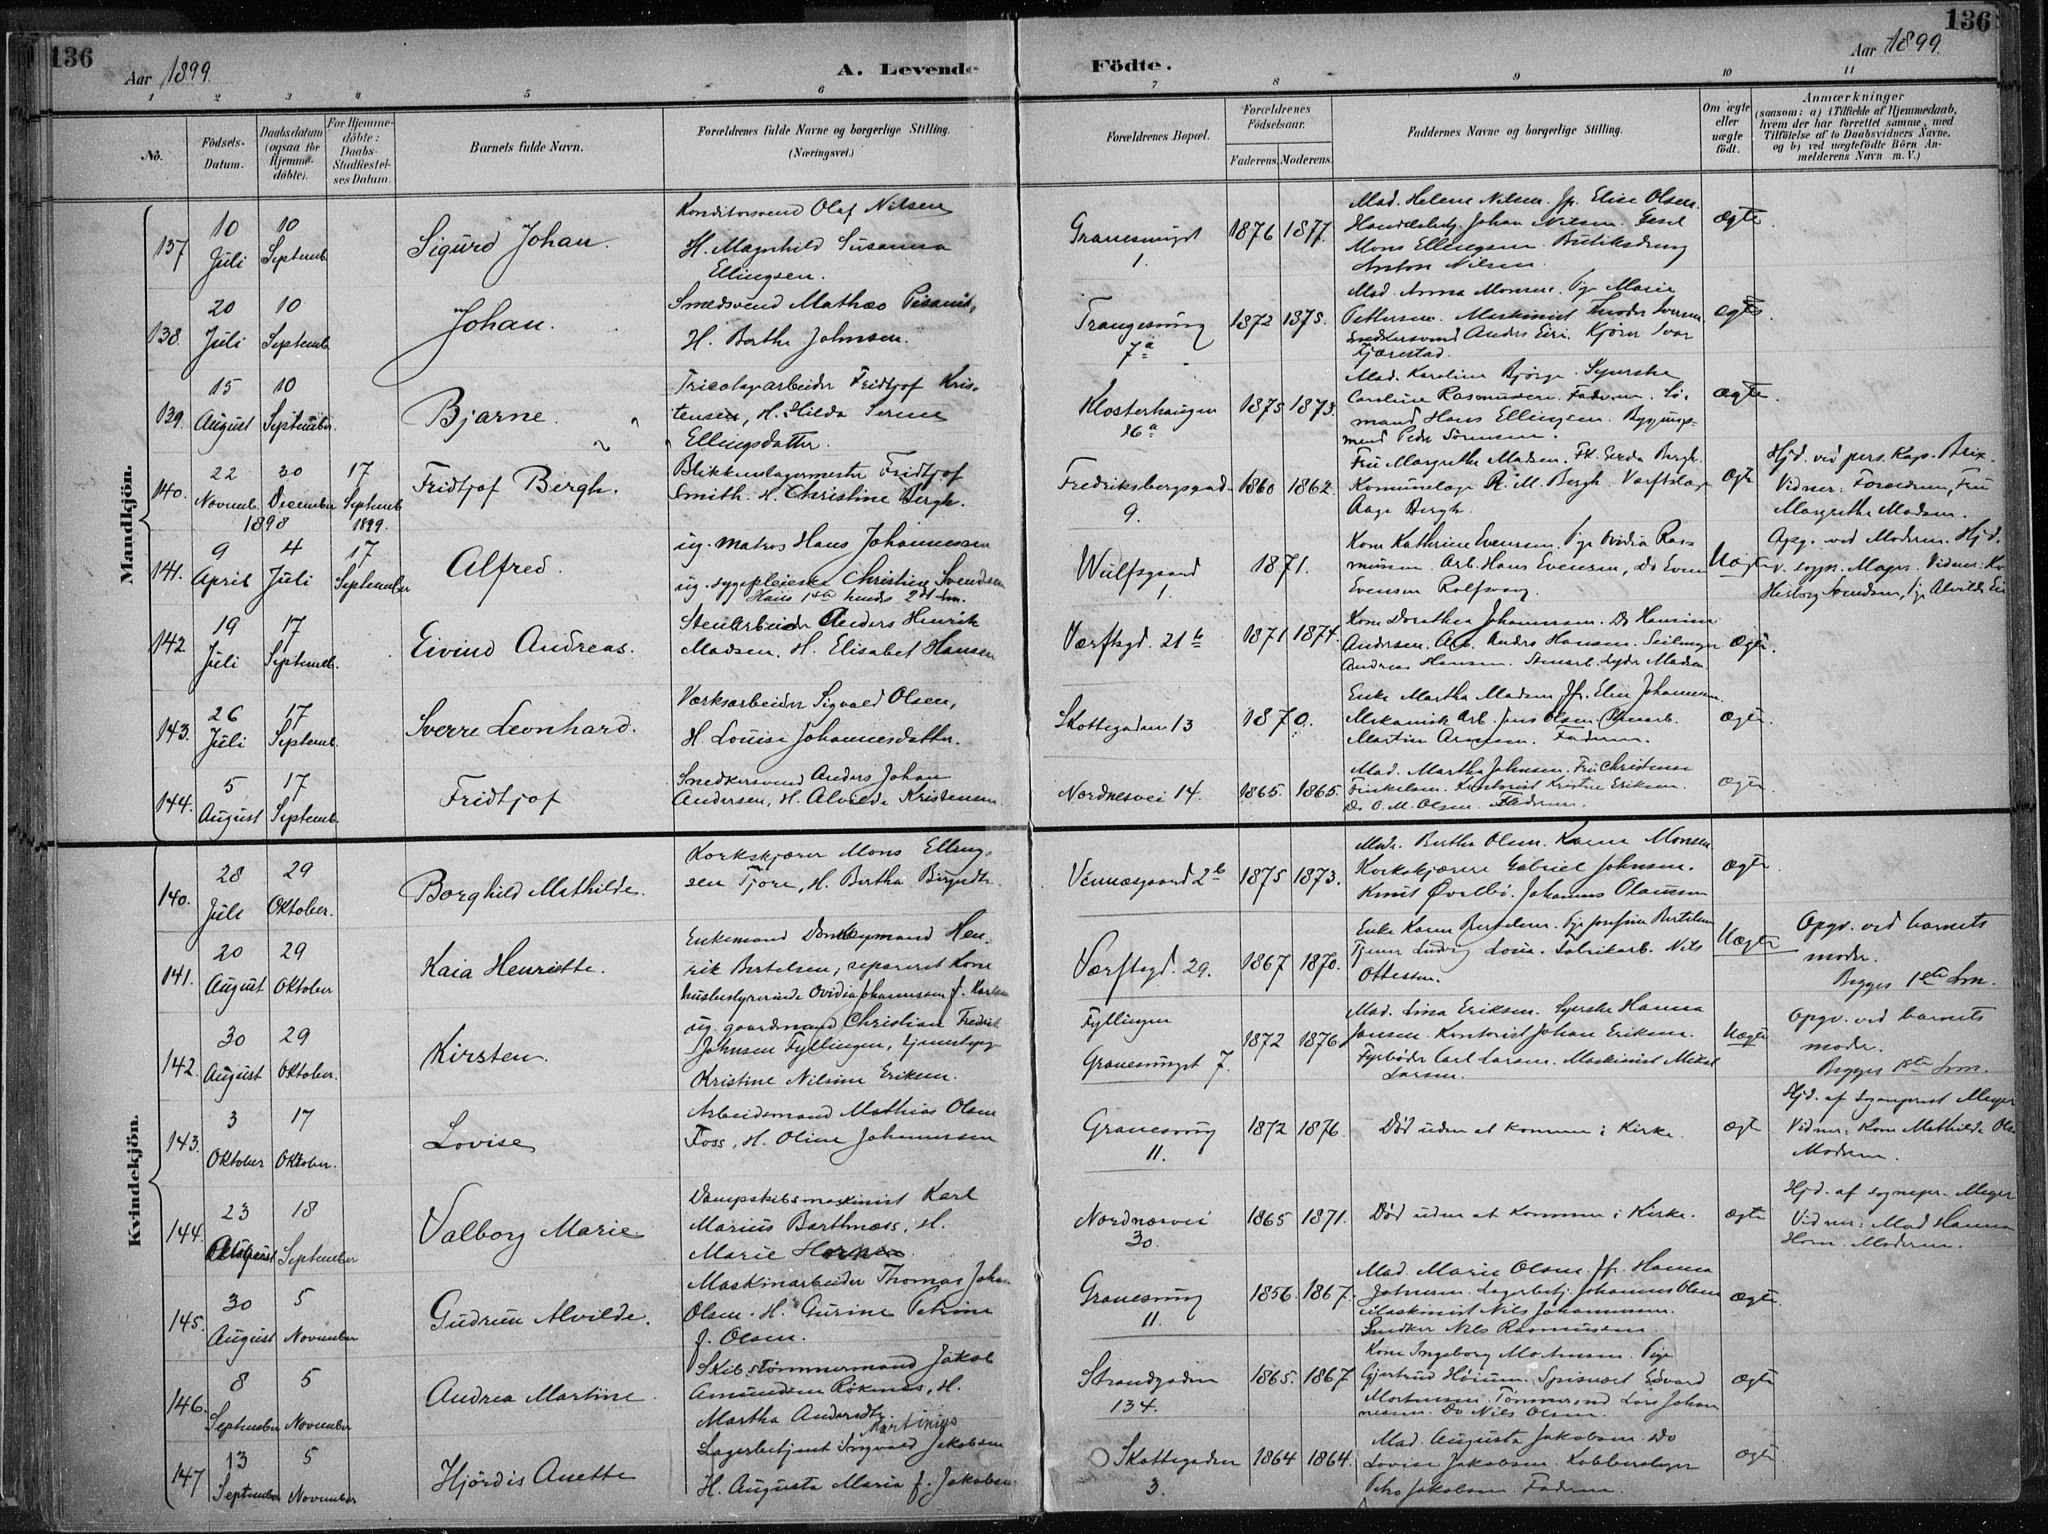 136
136
Aar 1899.
A. Levende Födte.
Aar 1899.
1 2 3 4 5 6 7 8 9 10 11
No.
Födsels-Datum.
Daabsdatum (ogsaa for Hjemmedöbte).
For Hjemmedöbte: Daabs-Stadfæstelses Datum.
Barnets fulde Navn.
Forældrenes fulde Navne og borgerlige Stilling.
(Næringsvei.)
Forældrenes Bopæl.
Forældrenes Födselsaar.
Faderens. Moderens.
Faddernes Navne og borgerlige Stilling.
Om ægte eller uægte födt.
Anmærkninger
(saasom: a) i Tilfælde af Hjemmedaab, hvem der har forrettet samme, med Tilföielse af to Daabsvidners Navne. og b) ved uægtefödte Börn Anmelderens Navn m. V.)
Mandkjön.
137 10 Juli 10 Septemb. Sigurd Johan.
Konditorsvend Olaf Nilsen
H. Magnhild Susanna
Ellingsen.
1. 1876 1877.
Mad. Helene Nilsen. Jp. Elise Olsen.
Johan Nilsen. Gesel
Mons Ellingsen. Butiksdreng
Anton Nilsen.
ægte
138. 20 Juli 10 Septemb. Johan.
Smedsvend Mathæo
H. Berthe Johnsen.
7a 1872 1875.
Mad. Anna Monsen. Pige Marie
Pettersen. Maskinist Theodor Iversen
Snedkersvend Anders Eri. Kjörer Ivar
Fjærestad.
ægte
139. 15 August 10 September. Bjarne.
Tricotagearbeider Fridtjof Kris-
tensen, H. Hilda
Ellingsdatter.
Klosterhaugen 16a 1875 1873.
Mad. Karoline Bjørge. Syerske
Caroline Rasmussen. Faderen. Sö-
mand Hans Ellingsen. Bygnings-
mand Peder Sörensen.
ægte
140. 22 Novemb. 30 December 1898 17 Septemb 1899. Fridtjof Bergh.
Blikkenslagermester Fridtjof
Smith. H. Christine Bergh.
Fredriksbergsgad 9. 1860 1862.
Fru Margrethe Madsen. Frk. Gerda Bergh.
R. M. Bergh.
Aage Bergh.
ægte
Hjd. ved pers. Kap. Brix.
Vidner: Forældrene, Fru
Margrethe Madsen.
141. 9 April 4 Juli 17 September Alfred.
ug. Matros Hans Johannessen
ug. sygepleierske Christine Svendsen
Hans 1ste hendes 2det Lm.
Wulfsgaard 1. 1871.
Kone Kathrine Evensen. Pige Ovidia Ras-
mussen. Arb. Hans Evensen, Do Even
Evensen
Uægte
Opg. ved Moderen. Hjd.
142 19 Juli 17 Septemb. Eivind Andreas.
Stenarbeider Anders Henrik
Madsen. H. Elisabet Hansen
Værftsgd. 21b 1871 1874.
Kone Dorothea Johannesen. Do
Andersen. Arb. Anders Hansen.
Andreas Hansen. Stenarb. Madsen
ægte.
143. 26 Juli 17 Septemb. Sverre Leonhard.
Værksarbeider Sigvald Olsen,
H. Louise Johannesdatter.
Skottegaden 13 1870.
Enke Martha Madsen Jfr. Elen Johannesen
Mekanisk Arb. Jens Olsen.
Martin Faderen.
ægte
144. 5 August 17 Septemb. Fridtjof
Snedkersvend Anders Johan
Andersen, H. Alvilde Kristensen
Nordnesvei 14. 1865. 1865.
Mad. Martha Johnsen. Fru Christense
Finkelsen. Kontorist Kristine Eriksen.
Do O. M. Olsen. Faderen.
ægte
Kvindekjön.
140. 28 Juli 29 Oktober. Borghild Mathilde.
Korkskjærer Mons Elling-
sen Tjöre, H. Bertha
2b 1875 1873.
Madr. Bertha Olsen. Karen Monsen
Korkskjærere Gabriel Johnsen.
Knut Øvrebö. Johannes Olaussen
ægte
141. 20 August 29 Oktober Kaia Henriette.
Enkemand Donkeymand Hen-
rik Bertelsen; separeret Kone
husbestyrerinde Ovidia Johannessen f. Karlsen
Værftsgd. 29. 1867 1870.
Enke Karen Bertelsen. Pige Josefine Bertelsen
Tjener Ludvig Fabrikarb. Nils
Ottesen.
Uægte
Opgv. ved barnets
moder.
Begges 1ste Lm.
142. 30 August 29 Oktober. Kirsten.
ug. gaardmand Christian Fredrik
Johnsen Fyllingen, tjenestepige
Kristine Nilsine Eriksen.
Fyllingen
7. 1872 1876
Mad. Lina Eriksen. Syerske Hanna
Jansen. Kontorist Johan Eriksen.
Fyrböder Carl Larsen. Maskinist Mikal
Larsen.
Uægte
Opgv. ved barnets
moder.
Begges 1ste Lm.
143. 3 Oktober 17 Oktober. Lovise
Arbeidsmand Mathias Olsen
Foss, H. Oline Johannessen
11. 1872 1876.
Död uden at komme i Kirke.
ægte
Hjd. af Sogneprest Meyer
Vidner: Kone Mathilde Olsen
Moderen.
144. 23 August 18 September Valborg Marie
Dampskibsmaskinist Karl
Marius Barthness, H.
Marie Horn
Nordnesvei 30. 1865 1871.
Död uden at komme i Kirke.
ægte
Hjd. af sognepr. Meyer
Vidner: Mad Hanna
Horn. Moderen.
145. 30 August 5 November Gudrun Alvilde.
Maskinarbeider Thomas Johan
Olsen. H. Gurine Petrine
f. Olsen.
11. 1856. 1867.
Mad. Marie Olsen. Jfr. Hanna
Johnsen. Lagerbetj. Johannes Olsen
Maskinist Nils Johannessen.
Snedker Nils Rasmussen.
ægte.
146. 8 September 5 November Andrea Martine
Skibstömmermand Jakob
Amundsen Rökenes, H.
Martha Andersdtr.
Strandgaden 134. 1865. 1867
Kone Ingeborg Mortensen. Pige
Gjertrud Edvard
Mortensen. Tömmermd Lars Johan-
nesen. Do Nils Olsen.
ægte
147 13 September 5 November Hjördis Anette
Martinius
Lagerbetjent Ingvald Jakobsen
H. Augusta Maria f. Jakobsen
Skottegaden 3. 1864 1864.
Mad. Augusta Jakobsen. Do
Lovise Jakobsen. Kobberslager
Jakobsen. Faderen.
ægte